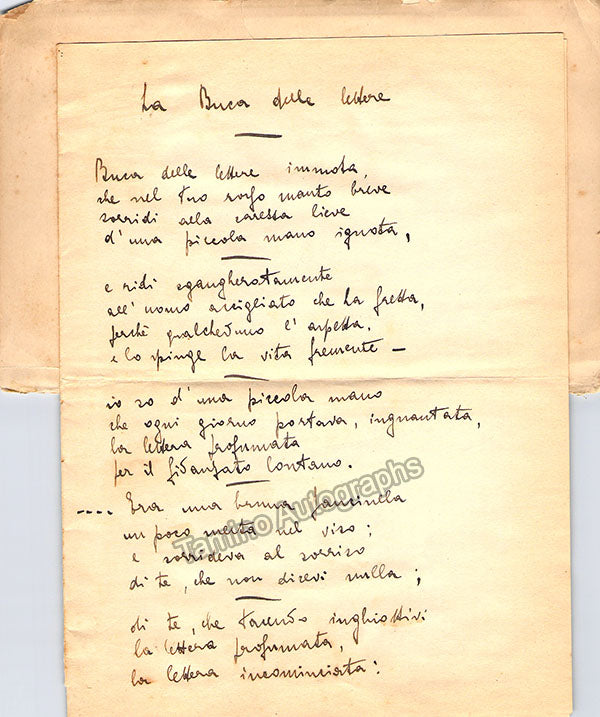 La Buca delle lettere
Buca delle lettere immota,
che nel tuo rosso manto breve
sorridi alla carezza lieve
d'una piccola mano ignota,
e ridi sgangheratamente
all'uomo accigliato che ha fretta,
perché qualcheduno l'aspetta,
e lo spinge la vita fremente —
io so d'una piccola mano
che ogni giorno portava, inguantata,
la lettera profumata
per il fidanzato lontano.
.... Era una bruna fanciulla
un poco mesta nel viso;
e sorrideva al sorriso
di te, che non dicevi nulla;
di te, che tacendo inghiottivi
la lettera profumata,
la lettera incominciata:
Tamino Autographs